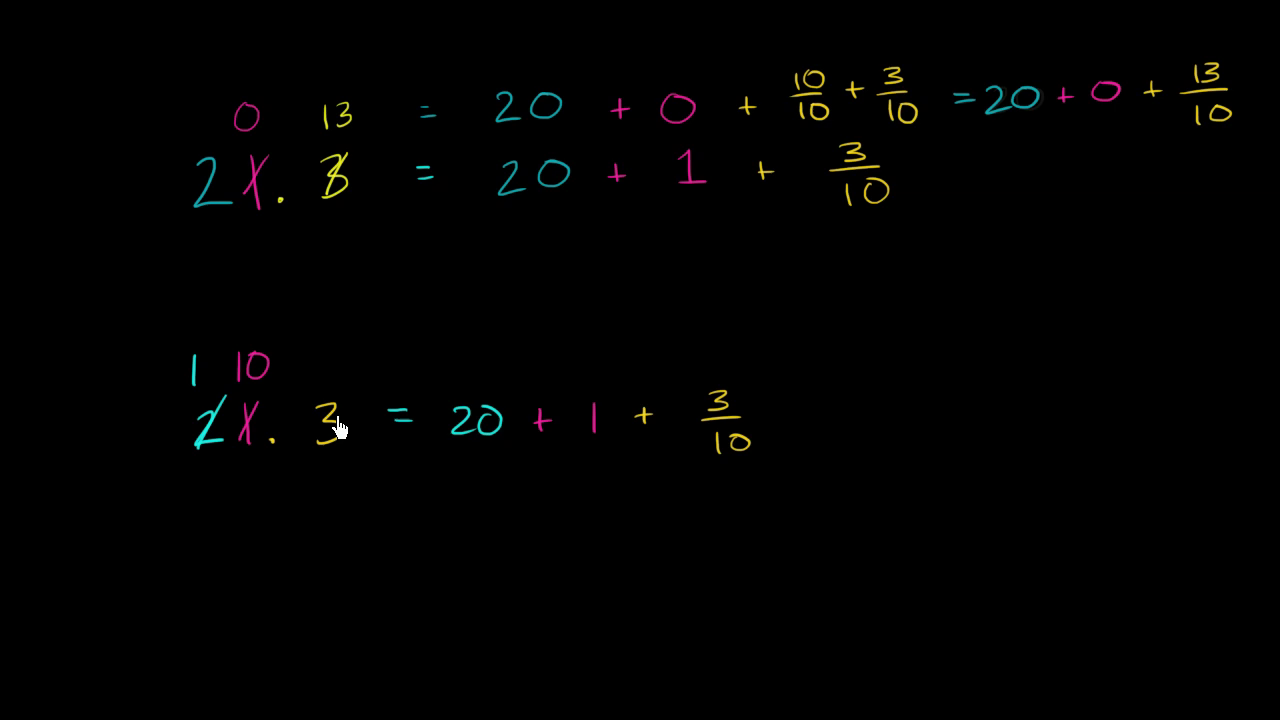 0 13 = 20 + 0 + 10/10 + 3/10 = 20 + 0 + 13/10
21.3 = 20 + 1 + 3/10
1 10
21.3 = 20 + 1 + 3/10